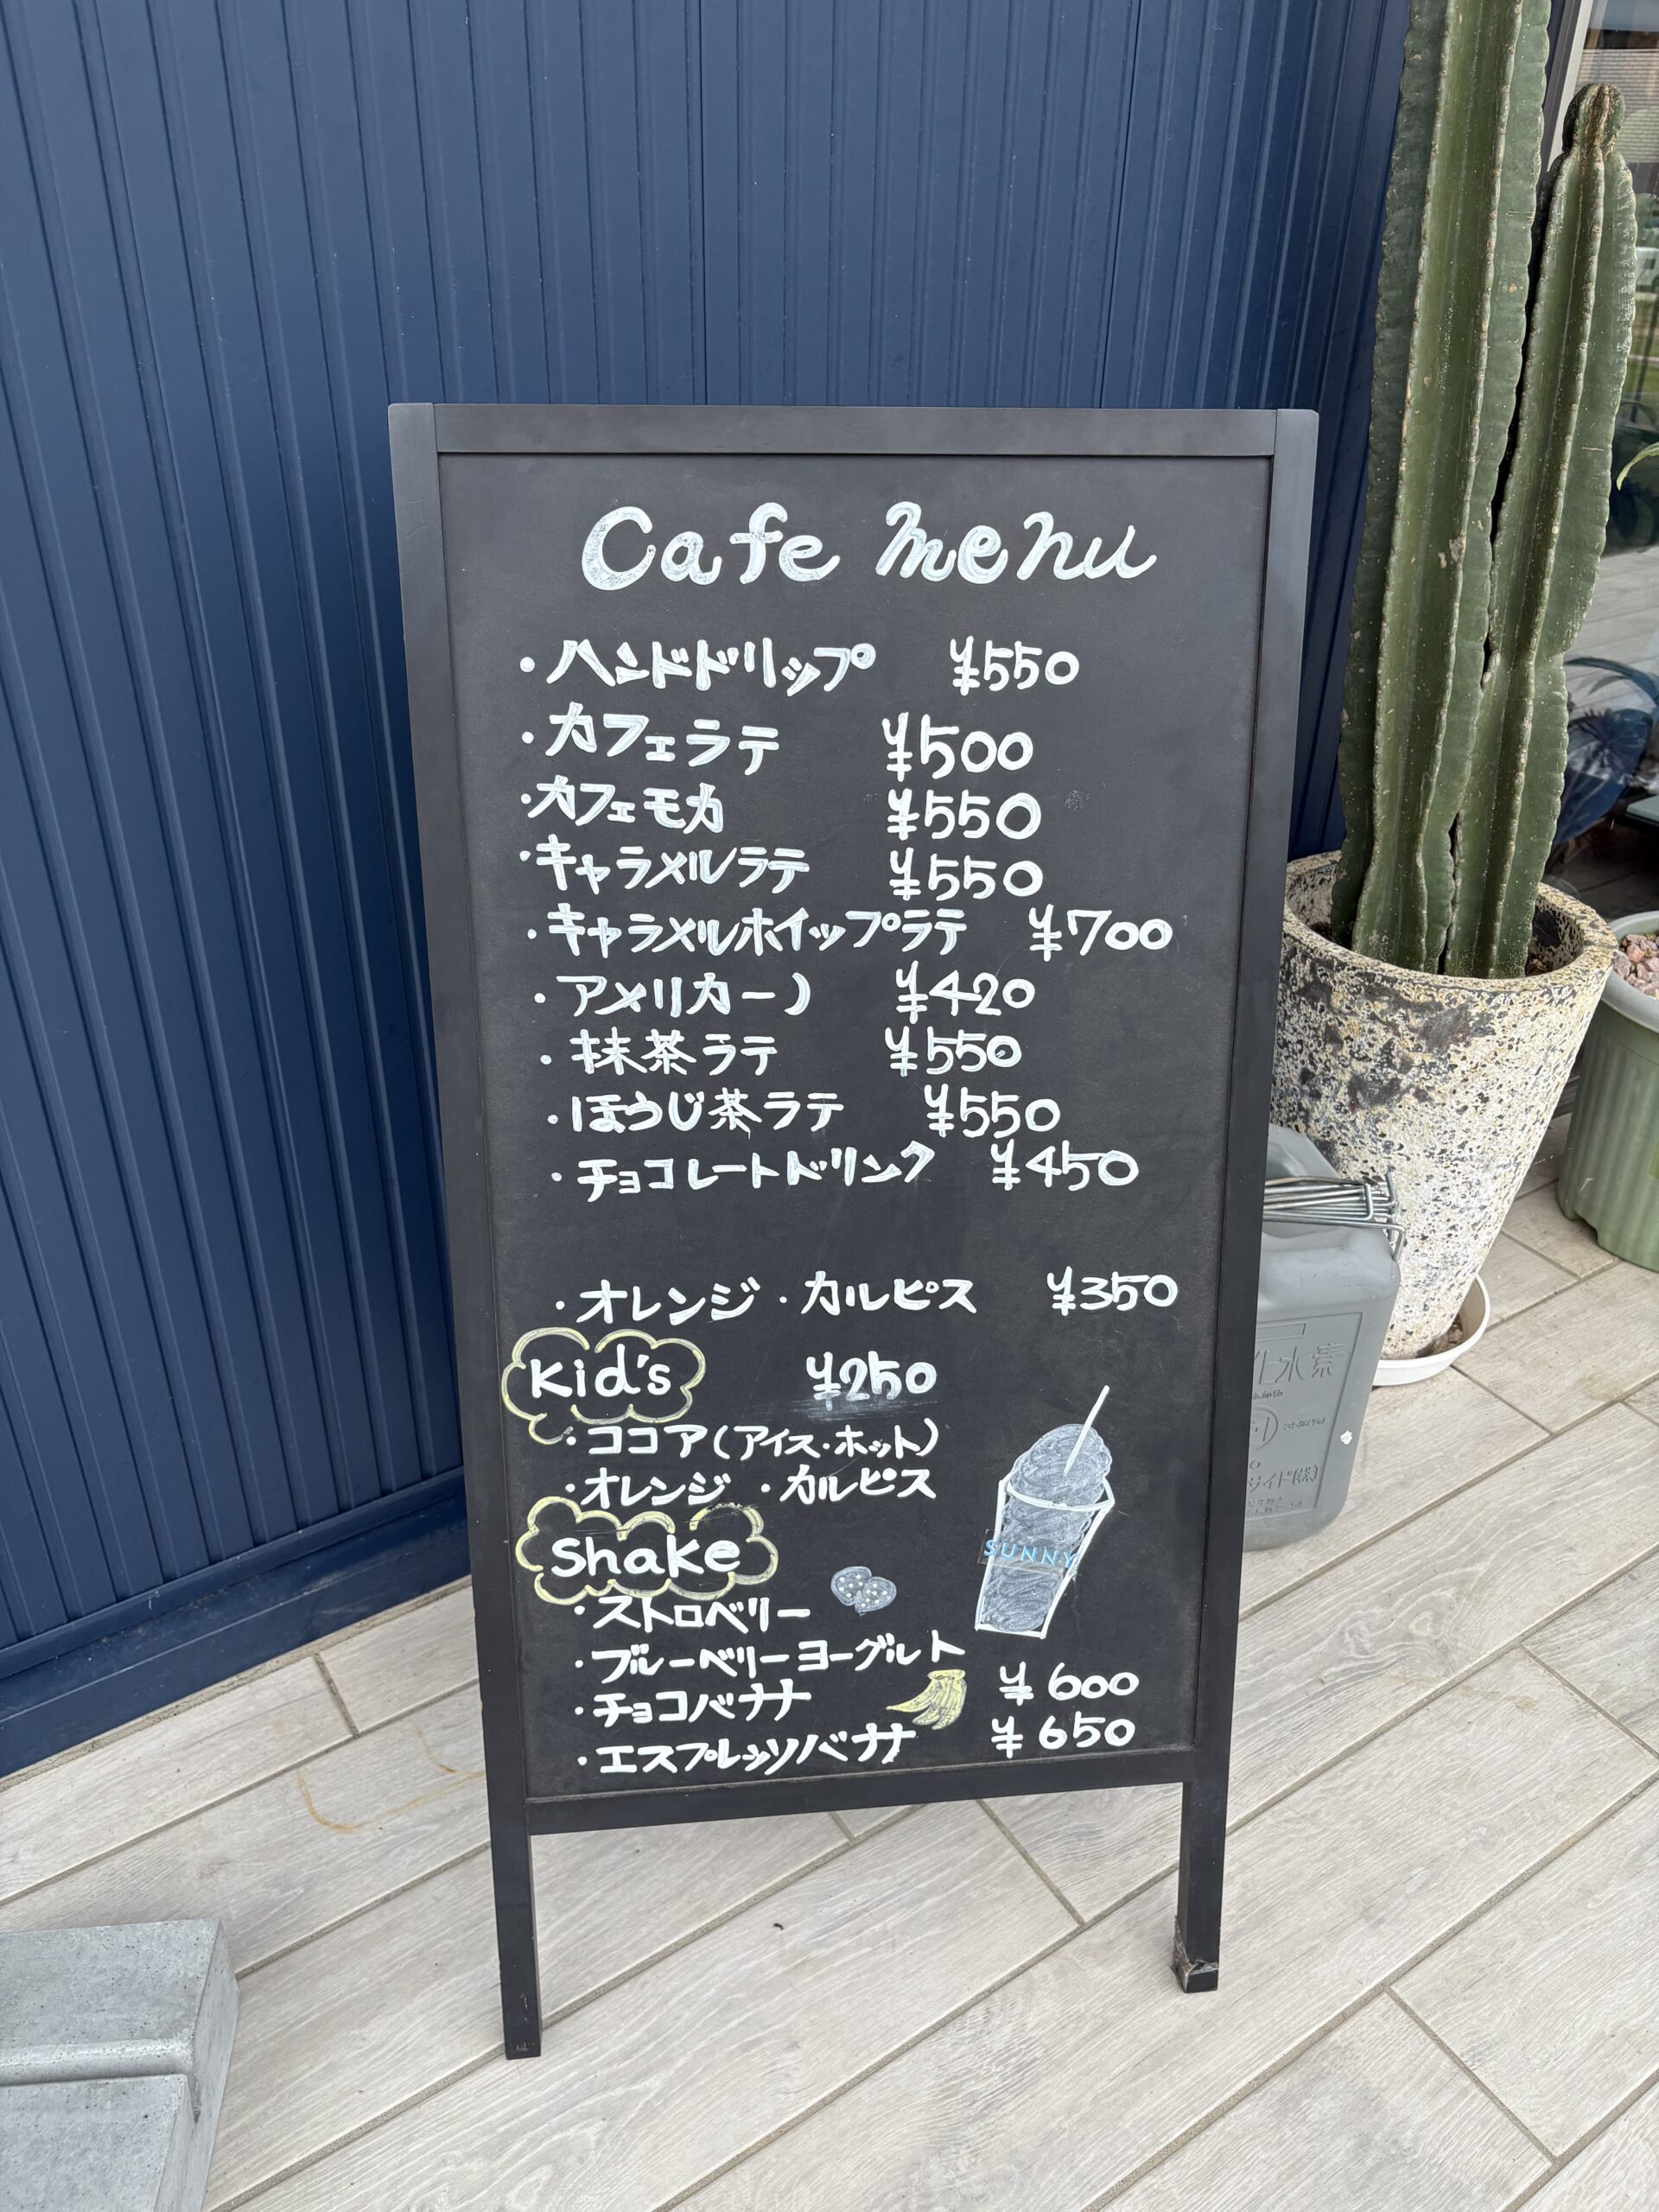 Cafe menu
・ハンドドリップ ¥550
・カフェラテ ¥500
・カフェモカ ¥550
・キャラメルラテ ¥550
・キャラメルホイップラテ ¥700
・アメリカーノ ¥420
・抹茶ラテ ¥550
・ほうじ茶ラテ ¥550
・チョコレートドリンク ¥450
・オレンジ ・カルピス ¥350
Kid's ¥250
・ココア(アイス・ホット)
・オレンジ ・カルピス
SUNNY
Shake
・ストロベリー
・ブルーベリーヨーグルト
・チョコバナナ ¥600
・エスプレッソバナナ ¥650